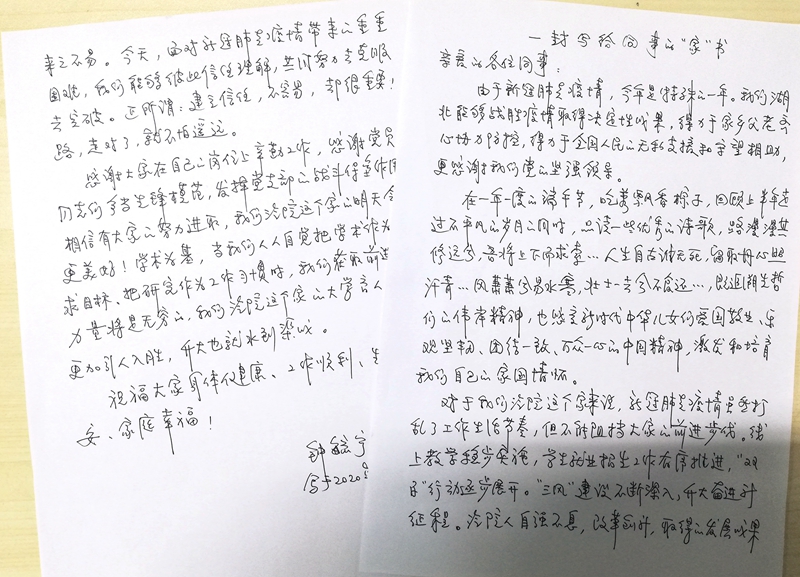 一封写给同事的“家”书
亲爱的各位同事：
由于新冠肺炎疫情，今年是特殊的一年。我们湖
北能够战胜疫情取得决定性成果，得力于家乡父老齐
心协力防控，得力于全国人民的无私支援和守望相助，
更感谢我们党的坚强领导。
在一年一度的端午节，吃着飘香粽子，回顾上半年走
过不平凡的岁月的同时，品读一些优秀的诗歌，路漫漫其
修远兮，吾将上下而求索…人生自古谁无死，留取丹心照
汗青…风萧萧兮易水寒，壮士一去兮不复还…，既追溯先哲
们的伟岸精神，也感立新时代中华儿女们爱国敬业、乐
观坚韧、团结一致、万众一心的中国精神，激发和培育
我们自己的家国情怀。
对于我们冶院这个家来说，新冠肺炎疫情虽然打
乱了工作生活节奏，但不能阻挡大家的前进步伐。线
上教学稳步实施，学生就业招生工作有序推进，“双
”行动逐步展开。“三风”建设不断深入，升大奋进新
征程。冶院人自强不息，改革创新，取得的发展成果
来之不易。今天，面对新冠肺炎疫情带来的重重
困难，我们能够彼此信任理解，共同努力去克服
去突破。正所谓：建立信任，不容易，却很重要！
路，走对了，就不怕遥远。
感谢大家在自己的岗位上辛勤工作，感谢党员
同志们争当先锋模范，发挥党支部的战斗堡垒作用
相信有大家的努力进取，我们冶院这个家的明天会
更美好！学术为基，当我们人人自觉把学术作为
求目标、把研究作为工作习惯时，我们前进
力量将是无穷的，我们冶院这个家的大学育人
更加引人入胜，升大也就水到渠成。
祝福大家身体健康、工作顺利、生
安、家庭幸福！
写于2020